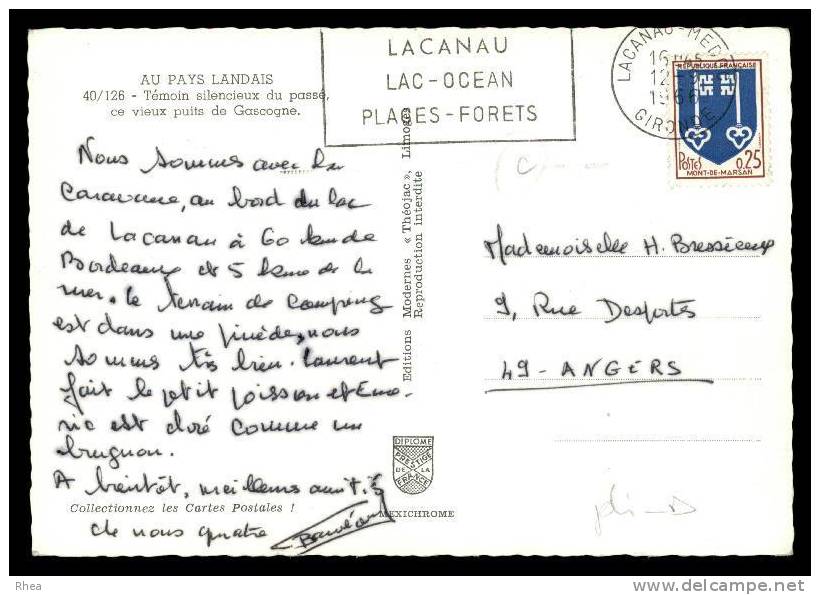 AU PAYS LANDAIS
40/126 - Témoin silencieux du passé,
ce vieux puits de Gascogne.
LACANAU
LAC-OCEAN
PLAGES-FORETS
LACANAU-MEDOC
16H45
12-
1966
GIRONDE
REPUBLIQUE FRANÇAISE
POSTES
0,25
MONT-DE-MARSAN
Nous sommes avec la
Caravane, au bord du lac
de Lacanau à 60 kms de
Bordeaux et 5 kms de la
mer. le terrain de camping
est dans une pinède, nous
sommes très bien. Laurent
fait le petit poisson et Eme-
ric est doré comme un
brugnon.
A bientôt, meilleures amitiés
de nous quatre
Collectionnez les Cartes Postales !
Editions Modernes « Théojac », Limoges
Reproduction interdite
DIPLOME
PRESTIGE
DE LA
FRANCE
MEXICHROME
Mademoiselle H.
9, Rue Desportes
49 - ANGERS
pli - D
Rhea
www.delcampe.net